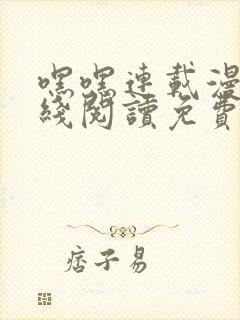 嘿嘿連載漫
綫閱讀免費
痞子易